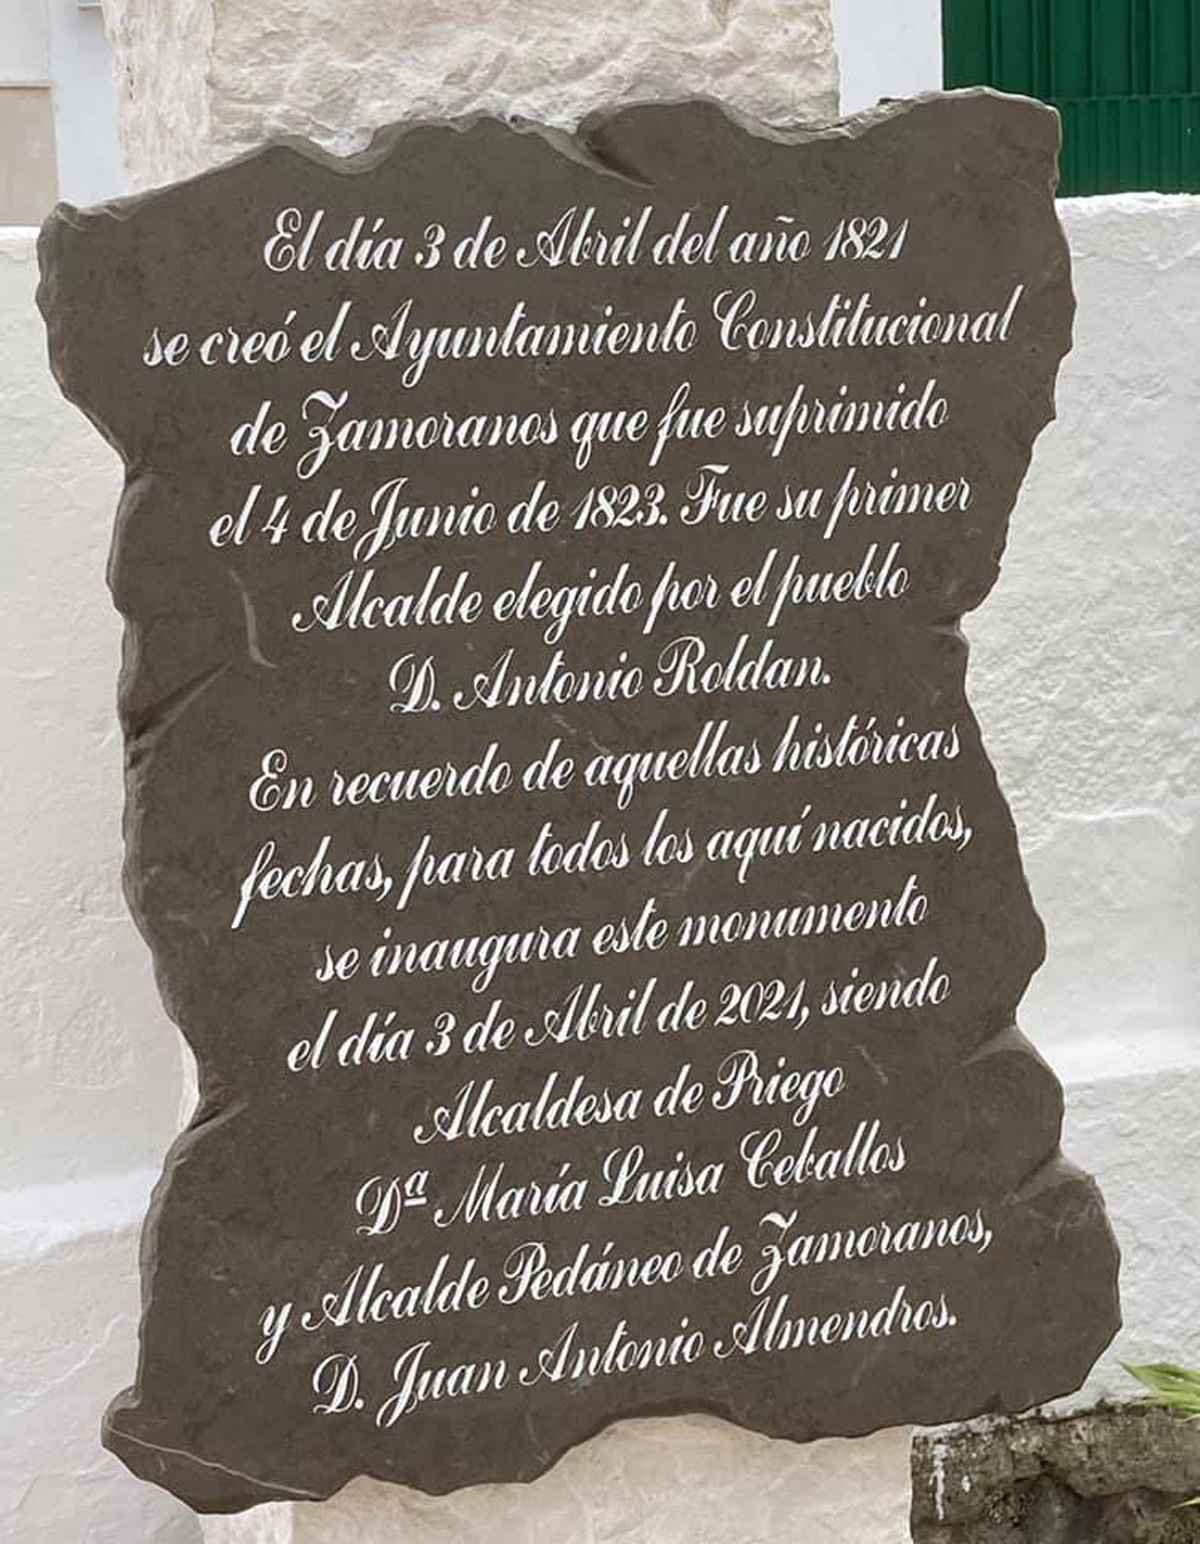 El día 3 de Abril del año 1821
se creó el Ayuntamiento Constitucional
de Zamoranos que fue suprimido
el 4 de Junio de 1823. Fue su primer
Alcalde elegido por el pueblo
D. Antonio Roldan.
En recuerdo de aquellas históricas
fechas, para todos los aquí nacidos,
se inaugura este monumento
el día 3 de Abril de 2021, siendo
Alcaldesa de Priego
Dª María Luisa Ceballos
y Alcalde Pedáneo de Zamoranos,
D. Juan Antonio Almendros.